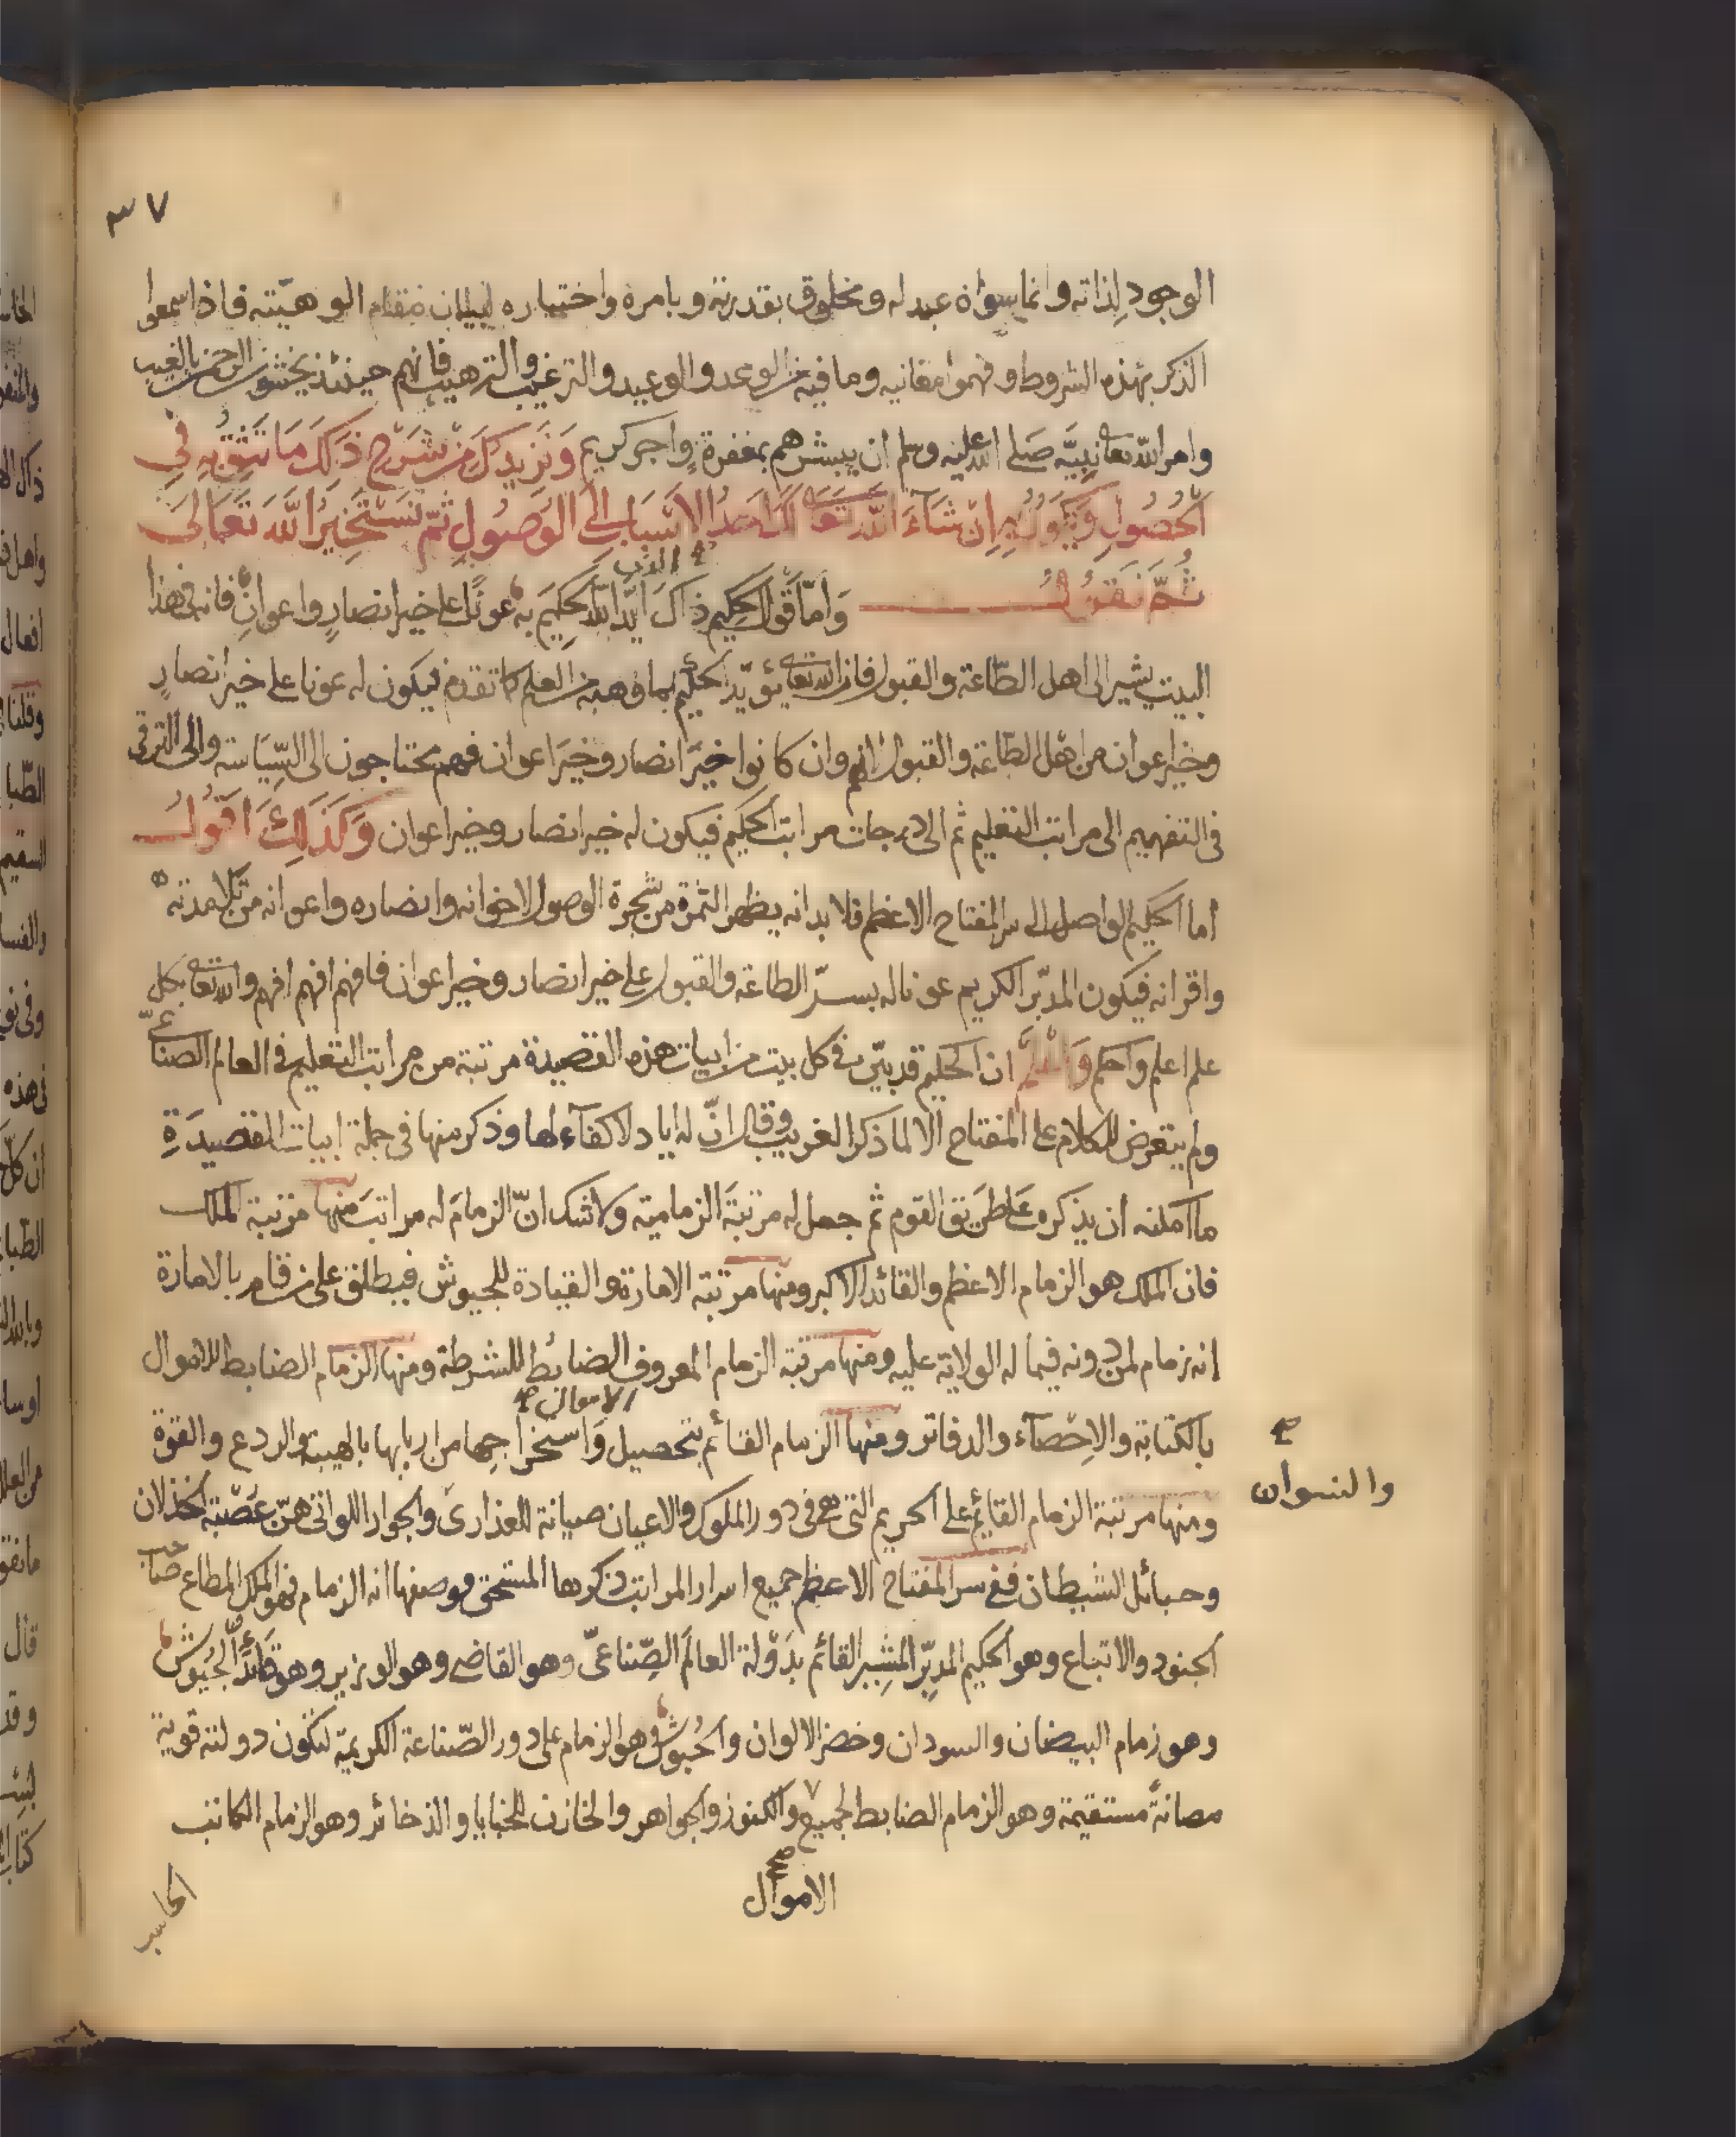 ٣٧
الوجود لذاته وانما سواه عبد له ومخلوق بقدرته وبامره واختياره لبيان مقام الوهيته فاذا سمعوا
الذكر بهذه الشروط وفهموا معانيه وما فيه من الوعد والوعيد والترغيب والترهيب فانهم حينئذ يخشون الرحمن بالغيب
وامر الله تعا نبيه صلى الله عليه وسلم ان يبشرهم بمغفرة واجر كريم ونزيدك من شرح ذلك ما تثق به في
الحصول ويكون به ان شاء الله تعا لك احد الاسباب الى الوصول ثم نستخير الله تعالى
ثم نقول واما قول الحكيم ذاك ايد الله الحكيم به عونا على خير انصار واعوان فانه في هذا
البيت يشير الى اهل الطاعة والقبول فان الله تعا يؤيد الحكيم بما وهبه من العلم كما تقدم فيكون له عونا على خير انصار
وخير اعوان من اهل الطاعة والقبول لانهم وان كانوا خير انصار وخير اعوان فهم محتاجون الى السياسة والى الترقي
في التفهيم الى مراتب التعليم ثم الى درجات مراتب الحكيم فيكون له خير انصار وخير اعوان وكذلك اقول
اما الحكيم الواصل الى سر المفتاح الاعظم فلا بد انه يظهر الثمرة من شجرة الوصول لاخوانه وانصاره واعوانه من تلامذته
واقرانه فيكون المدبر الكريم عونا له بسر الطاعة والقبول على خير انصار وخير اعوان فافهم افهم افهم والله تعا بكل
علم اعلم واحكم واعلم ان الحكيم قد بين في كل بيت من ابيات هذه القصيدة مرتبة من مراتب التعليم في العالم الصناعي
ولم يتعرض للكلام على المفتاح الا لما ذكر الغريب وقال ان له اياد لا كفاء لها وذكر منها في جملة ابيات القصيدة
ما امكنه ان يذكره على طريق القوم ثم جعل له مرتبة الزمامية ولا شك ان الزمام له مراتب منها مرتبة الملك
فان الملك هو الزمام الاعظم والقائد الاكبر ومنها مرتبة الامارة والقيادة للجيوش فيطلق على من قام بالامارة
انه زمام لمن دونه فيما له الولاية عليه ومنها مرتبة الزمام المعروف الضابط للشرطة ومنها الزمام الضابط للاموال
الاموال
بالكتابة والاحصاء والدفاتر ومنها الزمام القائم بتحصيل واستخراجها من اربابها بالهيبة والردع والقوة
والنسوان
ومنها مرتبة الزمام القايم على الحريم التي هي في دور الملوك والاعيان صيانة للعذارى والجوار اللواتي هن عصبة الخذلان
وحبائل الشيطان ففي سر المفتاح الاعظم جميع اسرار المراتب ذكرها المستحق بوصفها انه الزمام فهو الملك المطاع صاحب
الجنود والاتباع وهو الحكيم المدبر المشير القائم بدولة العالم الصناعي وهو القاضي وهو الوزير وهو قائد الجيوش
وهو زمام البيضان والسودان وخضر الالوان والحبوش وهو الزمام على دور الصناعة الكريمة لتكون دولته قوية
مصانة مستقيمة وهو الزمام الضابط لجميع والكنوز والجواهر والخازن للخبايا والذخائر وهو الزمام الكاتب
الاموال
الحاسب